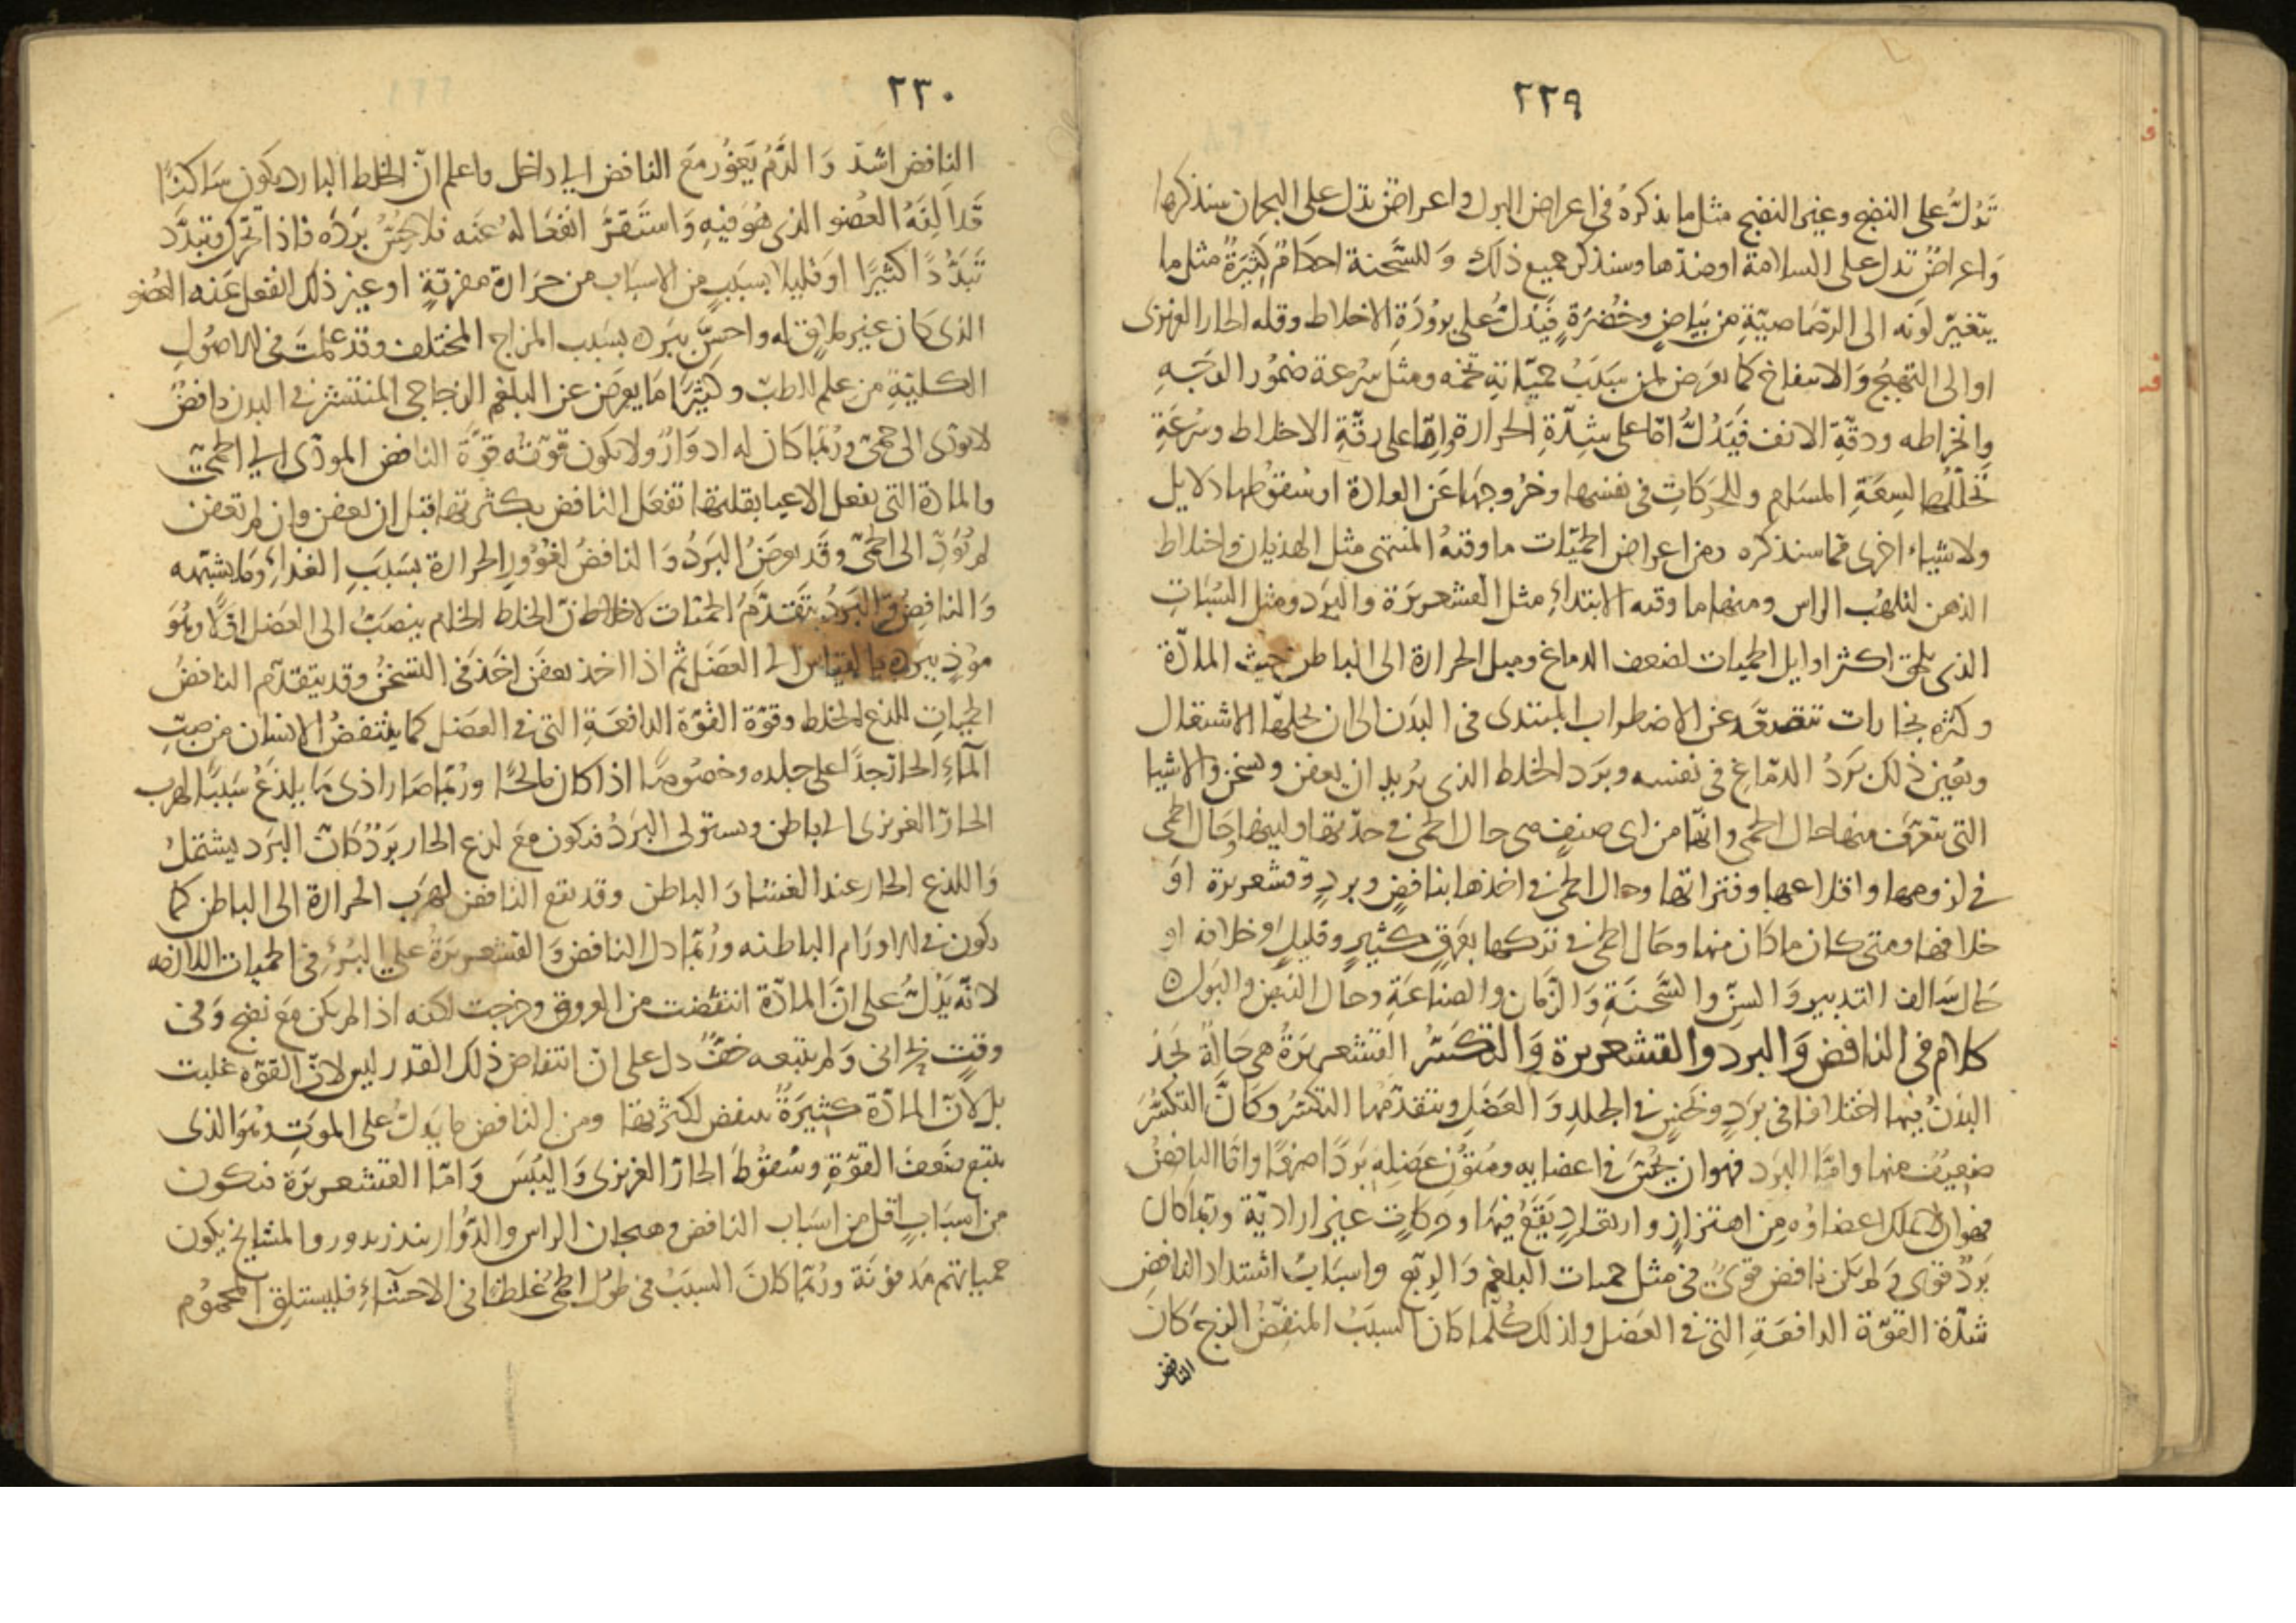 ٢٢٩
تَدُلُّ على النضج وغير النضج مثل ما نذكرهُ في اعراض البول واعراضٌ تدل على البحران سنذكرها
وَاعراضٌ تدل على السلامة اوضدّها وسنذكر جميع ذلك وَللسَّحنة احكام كثِيرَةٌ مثل ما
يتغيّر لونه الى الرّصَاصيّةِ مِن بَيَاضٍ وخُضْرَةٍ فيَدُلُّ على برُودَةِ الاخلاط وقله الحار الغريزى
اوالى التهيُّج وَالانتفاخ كما يعرَض لمن سَبَبُ حميّاتهِ تخمه ومثل سُرعة ضمُور الوَجهِ
وانخراطه ودقّةِ الانف فيَدُلُّ امّا على شِدّةِ الحرارة وامّا على رقّةِ الاخلاط وسُرعَةِ
تحَلّلهَا لِسِعَةِ المسَام وللحَرَكاتِ في نفسها وخرُوجهَا عَن العادة اوسُقوطها دلايل
ولاشياء اخرى مما سنذكره ومن اعراض الحميّات ما وقتهُ المنتهى مثل الهذيان واختلاط
الذهن لتلهّب الراس ومنها ما وقته الابتداءِ مثل القشعريرَة والبَرد ومثل السُبَاتِ
الذى يلحق اكثر اوايل الحميات لضعف الدماغ وميل الحرارة الى الباطن حيث المادّة
وكثره بخارات تتصعّد عن الاضطراب المبتدى في البدَن الى ان يحلّلها الاشتعال
ويُعين ذلك بَردُ الدمَاغِ في نفسه وبرَد الخلط الذى يُريد ان يعفن ويسخن والاشيا
التى يتعرّف منها حال الحمى وانها من اى صنفٍ هى حال الحمى في حدّتها ولينها وحَال الحمى
في لزومها واقلاعها وفتراتها وحال الحمى في اخذها بنافضٍ وبردٍ وقشعريرة اوَ
خلافها ومتى كان ماكان منها وحَال الحمى في تركها بعَرقٍ كثيرٍ وقليلٍ وخلافه او
حَال سَالف التدبير وَالسنّ والسَّحنَةِ وَالزمَان والصناعَةِ وحال النبض والبَول ه
كلام في النافض وَالبرد والقشعريرة وَالتكسّر القشعريرَةُ هي حَالةٌ يَجدُ
البَدَنُ فيها اختلافا في بَردٍ ونخسٍ في الجلدِ وَالعضَلِ ويتقدّمهَا التكسّرُ وكأنَّ التكسُّرَ
ضعيفٌ منها وامّا البَرد فهوان يُحِسَّ في اعضايه ومُتوُن عَضلِه بَردًا صرفًا وامّا النافضُ
فهوان لا يملك اعضاوُه مِن اهتزازٍ وارتعادٍ يَقَعُ فيهَا وحركاتٍ غير ارادِيّة وربّما كان
بَردٌ قوى وَلم يكن نافض قوىٌ في مثل حميات البلغم وَالرِبع واسبَابُ اشتداد النافض
شدّة القوّة الدافعَةِ التى في العَضل ولذلك كُلّما كان السبَبُ المنفِضُ الزجَ كانَ
النافض
٢٣٠
النافِض اشدّ وَالدَّمُ يَغوُر مَعَ النافض الى داخل واعلم انّ الخلط البارد يكون سَاكنًا
قد الِفَهُ العُضو الذى هُوَ فيهِ وَاستَقرَّ انفعَالهُ عَنه فلا يُحسُّ بَردُه فاذا تحرّك وتبدَّد
تَبَدُّدًا كثيرًا اوقليلا بسبَبٍ من الاسبَاب من حَرارة مفرّقةٍ اوغير ذلك انفعل عَنه العُضو
الذى كان غير ملاقٍ له واحسَّ ببَرده بسبَب المزاج المختلف وقد عَلمتَ في الاصُولِ
الكليّةِ من عِلم الطبّ وكثيرًا مَا يعرِض عن البلغم الزجاجى المنتشر في البدن نافضٌ
لا يؤدّى الى حُمىّ ورُبّما كان له ادوَارٌ ولا يكون قوّته قوّةَ النافض المودّى الى الحمىّ
والمادة التى يفعل الاعيا بقلتها تفعَل النافض بكثرتها قبل ان تعفن وان لم تعفن
لم تُؤدِّ الى الحُمىّ وقد يعرِضُ البَردُ وَالنافضُ لغؤُورِ الحرارة بسَبَبِ الغذاءِ وَما يشبّهه
وَالنافِضُ وَالبَردُ يتقدّمُ الحميّات لان الخلط الخام ينصَبّ الى العَضل اوّلًا وَهُوَ
موذٍ ببرده بالقياس الى العضَل ثم اذا اخذ يعفَن اخَذ في التسَخّنُ وقد يتقدّم النافضُ
الحميّاتِ للذع الخلط وقوّة القُوّة الدافعَةِ التى في العضَل كما ينتفضُ الانسان من صبّ
المآءِ الحارّ جدًّا على جلده وخصُوصًا اذا كان مالحًا ورُبّما صَار اذى مَا يلذَعُ سَبَبًا لهرب
الحارّ الغريزى الى باطن ويستولى البَردُ فيكون مَعَ لذع الحار بَردٌ كانّ البَرد يشتملُ
وَاللذع الحار عند الغشاوَ الباطن وقد يتبع النافض لهرَبِ الحرارة الى الباطن كما
يكون في الاورَام الباطنه ورُبّما دل النافض وَالقشعريرَةُ على البُرؤ في الحميات اللازمه
لانّه يَدُلُّ على انَّ المادّة انتفضت من العروق وخرجت لكنه اذا لم يكن مَعَ نضج وَفى
وقتٍ بحرانى وَلم يتبعه خفٌّ دل على انّ انتفاض ذلك القدر ليس لانّ القوّه غلبت
بل لانّ المادّة كثِيرَةٌ تنفض لكثرتها ومن النافض ما يَدلُّ على الموتِ وَهُوَ الذى
يتبع ضَعفَ القوّةِ وسُقوُطَ الحارّ الغريزى وَاليُبسَ وَامّا القشعريرَة فتكون
من اسبَابٍ اقل من اسبَاب النافض وهيجان الراس والدَّوُار ينذر بدور والمشايخ يكون
حمياتهم مَدفُونَة ورُبّما كانَ السبَبُ في طوُل الحمىّ غلظًا في الاحشآءِ فليستلقِ المحموُم